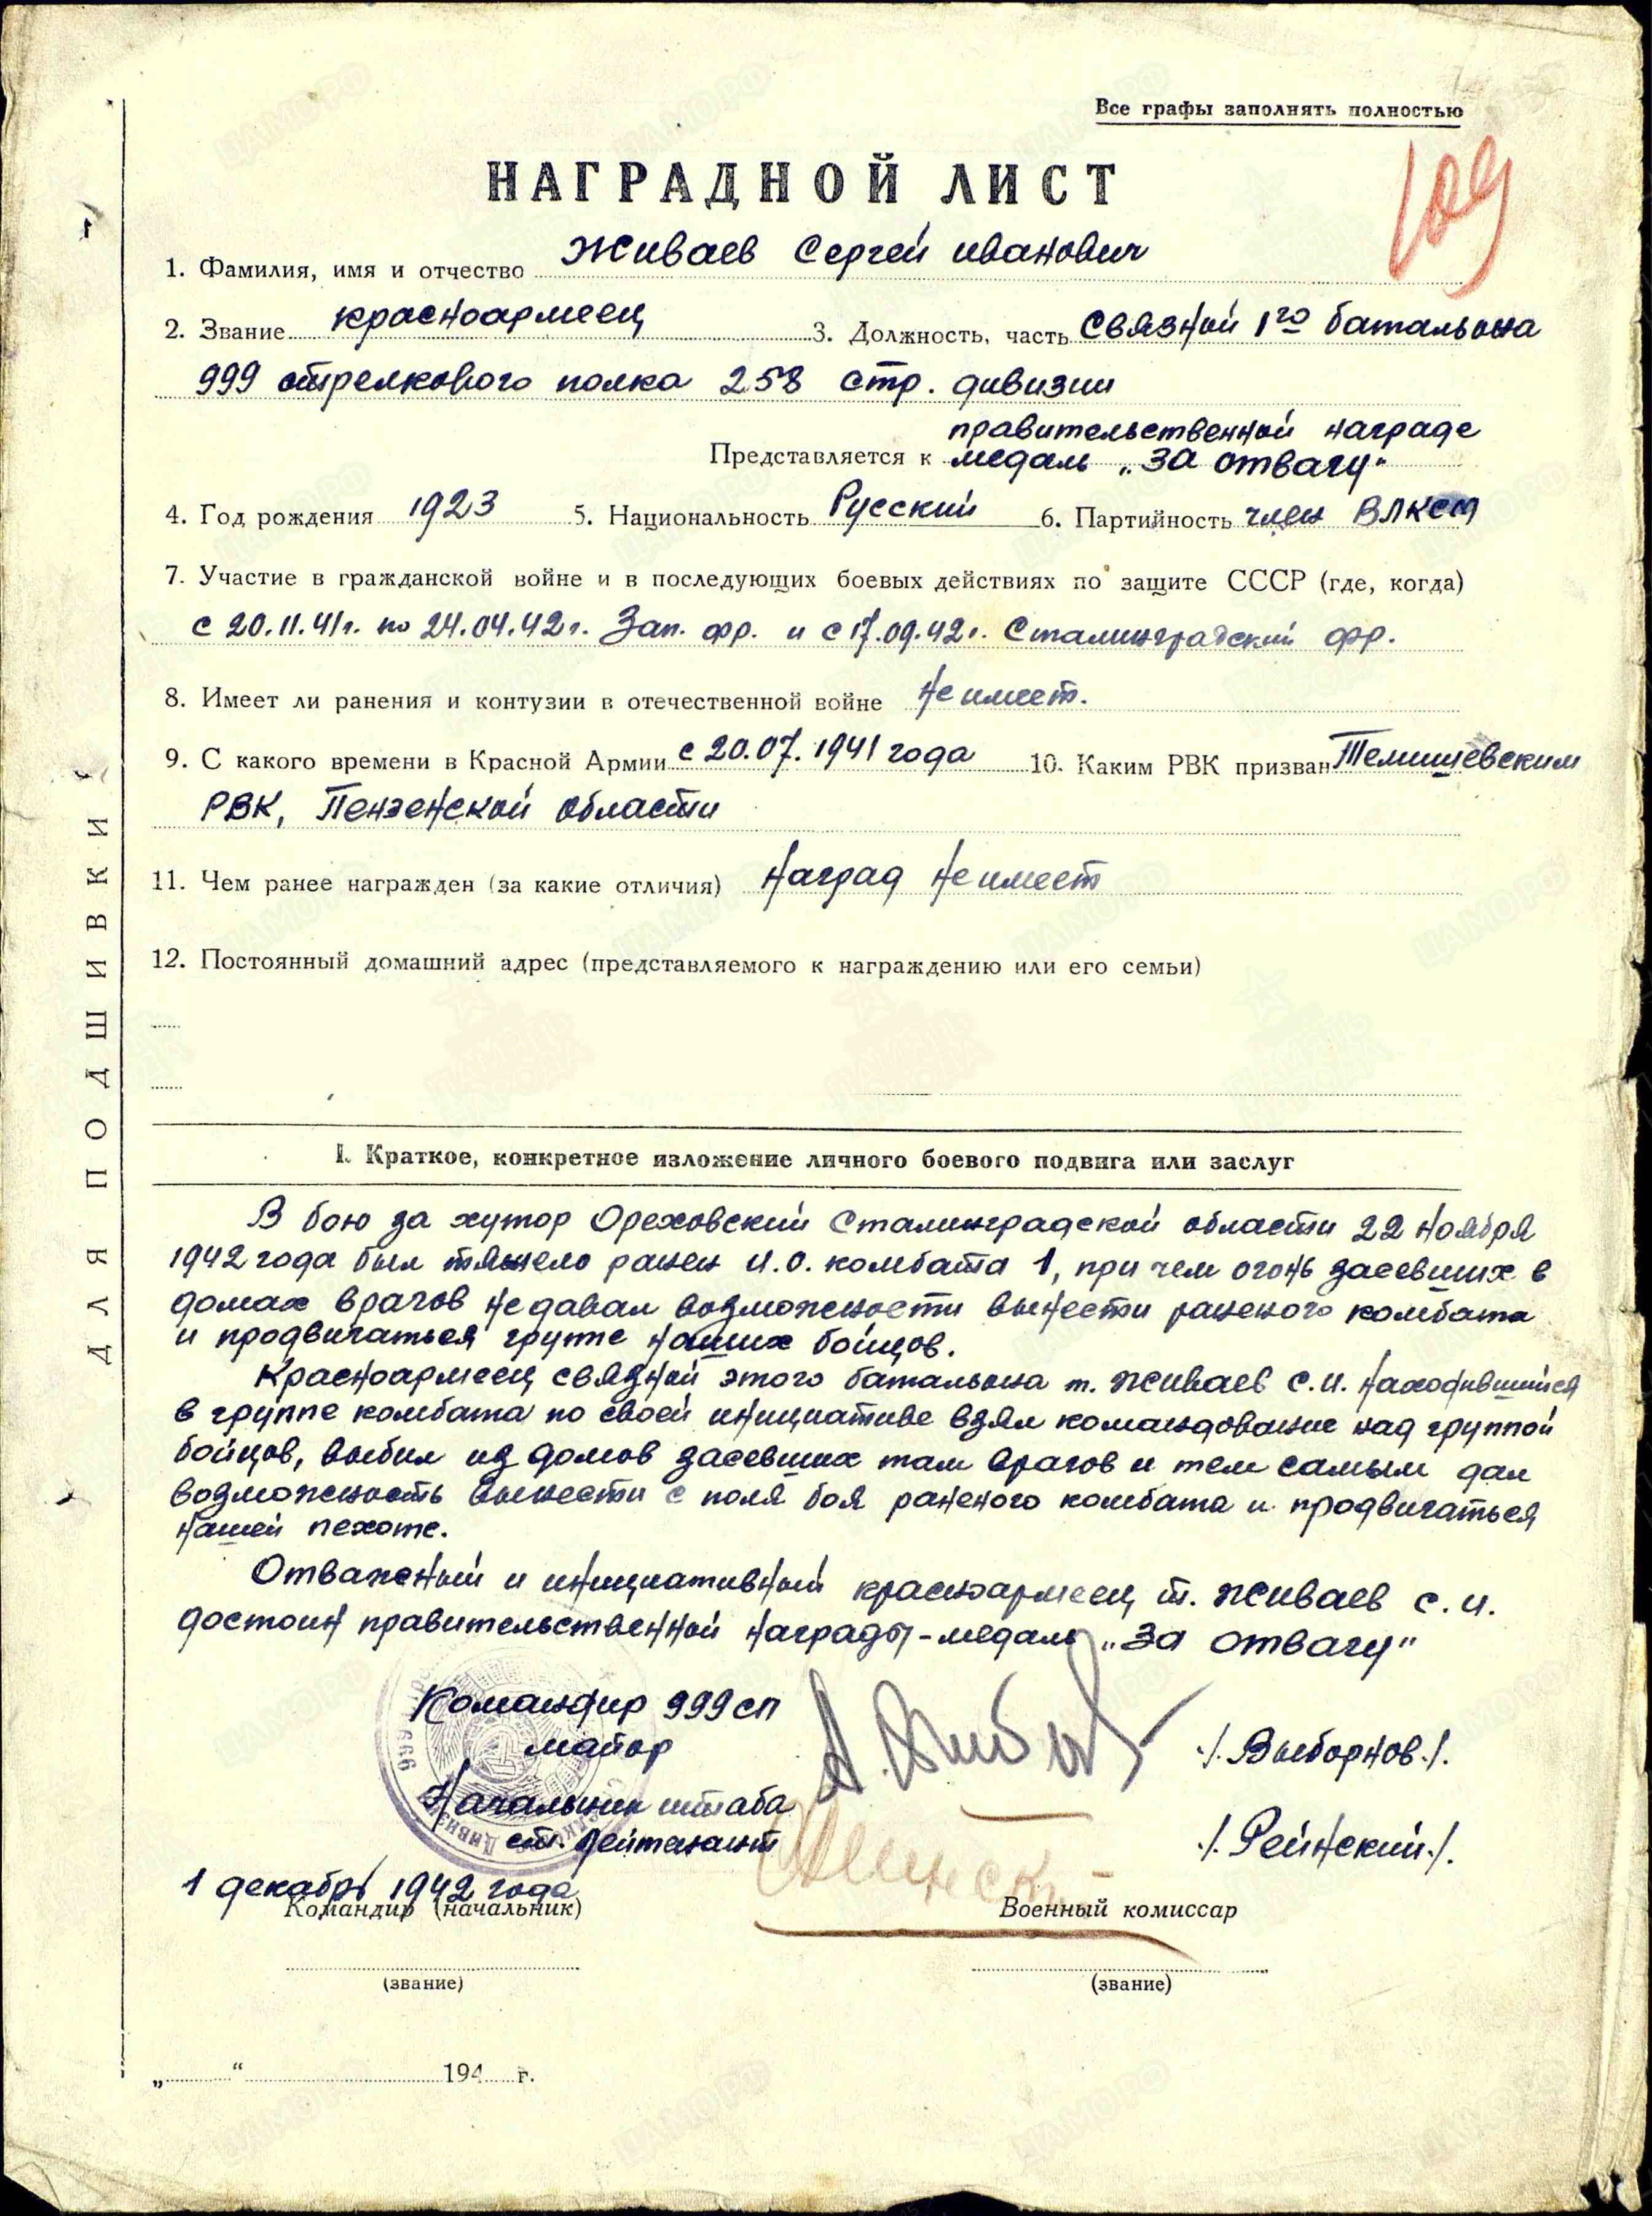 Все графы заполнять полностью
109
НАГРАДНОЙ ЛИСТ
1. Фамилия, имя и отчество Живаев Сергей Иванович
2. Звание красноармеец 3. Должность, часть Связной 1го батальона
999 стрелкового полка 258 стр. дивизии
правительственной награде
Представляется к медаль „За отвагу"
4. Год рождения 1923 5. Национальность Русский 6. Партийность член ВЛКСМ
7. Участие в гражданской войне и в последующих боевых действиях по защите СССР (где, когда)
с 20.11.41г. по 24.04.42г. Зап. фр. и с 17.09.42г. Сталинградский фр.
8. Имеет ли ранения и контузии в отечественной войне Не имеет.
9. С какого времени в Красной Армии с 20.07.1941 года 10. Каким РВК призван Телишевским
РВК, Пензенской области
11. Чем ранее награжден (за какие отличия) Наград не имеет
12. Постоянный домашний адрес (представляемого к награждению или его семьи)
I. Краткое, конкретное изложение личного боевого подвига или заслуг
В бою за хутор Ореховский Сталинградской области 22 ноября
1942 года был тяжело ранен И.О. комбата 1, при чем огонь засевших в
домах врагов не давал возможности вынести раненого комбата
и продвигаться группе наших бойцов.
Красноармеец связной этого батальона т. Живаев С.И. находившийся
в группе комбата по своей инициативе взял командование над группой
бойцов, выбил из домов засевших там врагов и тем самым дал
возможность вынести с поля боя раненого комбата и продвигаться
нашей пехоте.
Отважный и инициативный красноармеец т. Живаев С.И.
достоин правительственной награды-медаль „За отвагу"
Командир 999 сп
майор /.Выборнов./.
Начальник штаба
ст. лейтенант /.Рейнский./.
1 декабря 1942 года
Командир (начальник) Военный комиссар
(звание) (звание)
„ " 194 г.
ДЛЯ ПОДШИВКИ